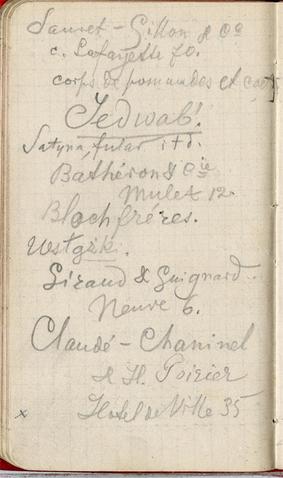 Sauret - Gillon & Co
c. Lafayette 70.
corps de pommades et
Jedwab!
Satyna, fular itd.
Bathéron & Cie
Mulet 12.
Bloch fréres.
Wstążki.
Giraud & Guignard
Neuve 6.
Claudé - Chaninel
& H. Poirier
x Hotel de Ville 35